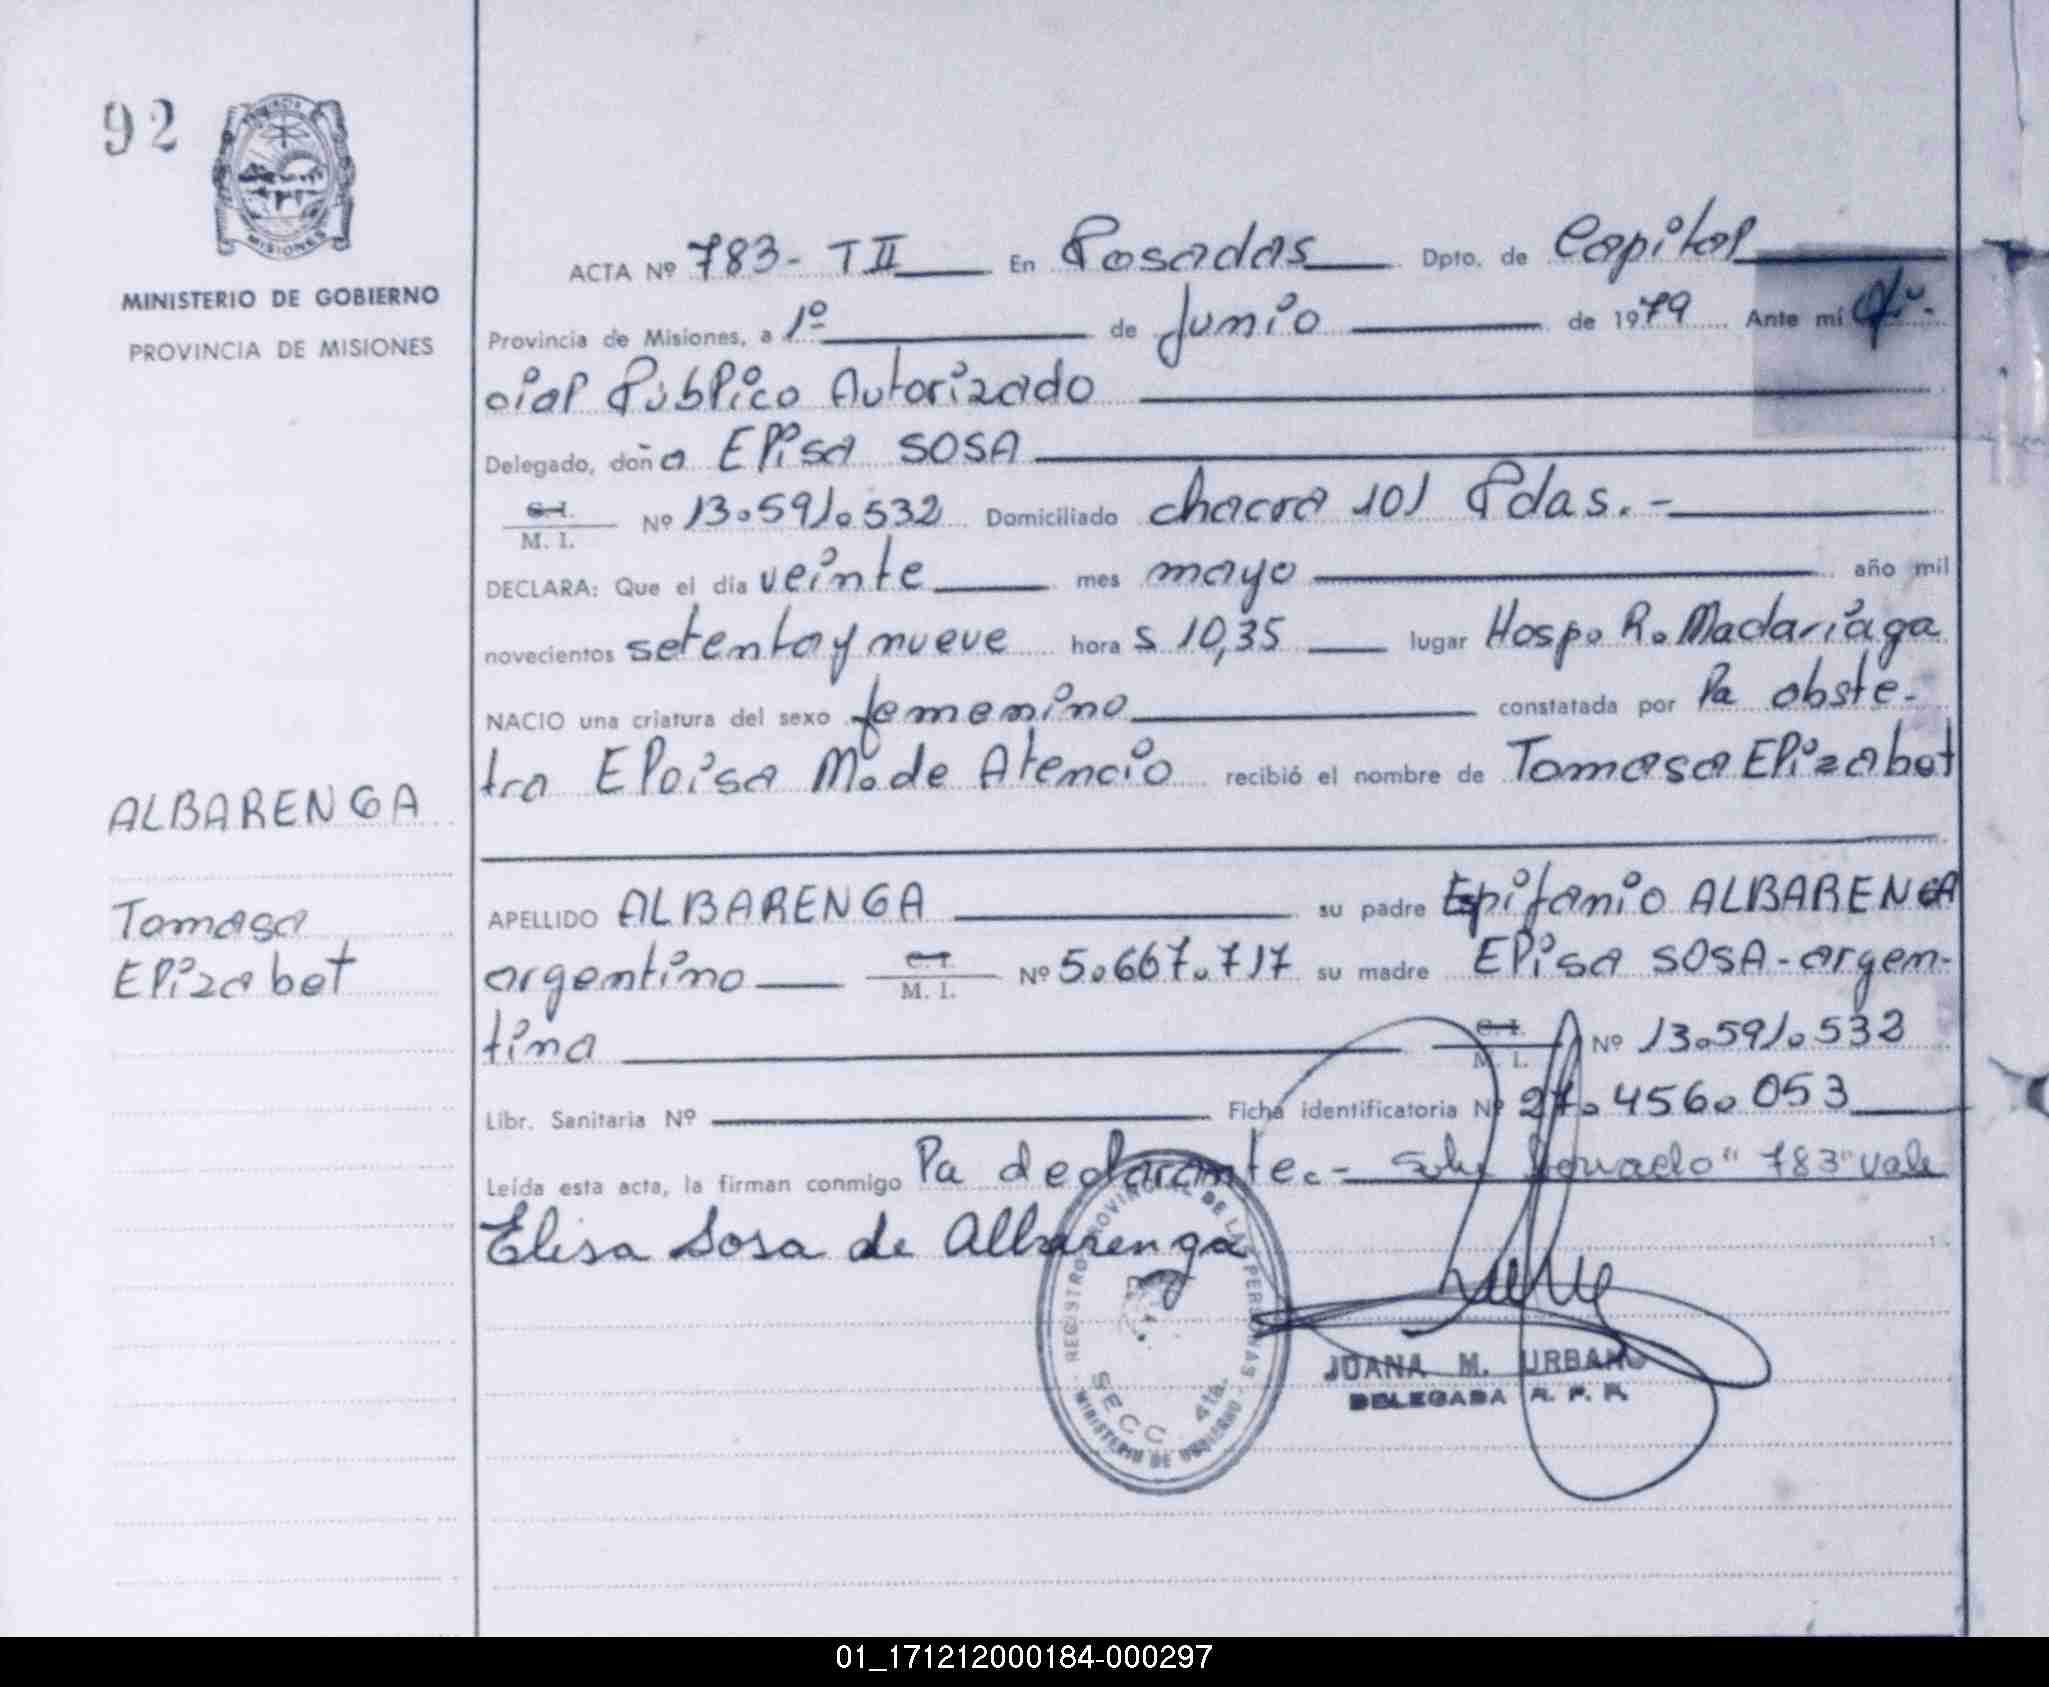 92
MISIONES
MINISTERIO DE GOBIERNO
PROVINCIA DE MISIONES
ACTA Nº 783- T II En Posadas Dpto. de Capital
Provincia de Misiones, a 1º de Junio de 1979 Ante mí Ofi-
cial Público Autorizado
Delegado, doña Elisa SOSA
C. I.
M. I. Nº 13.591.532 Domiciliado chacra 101 Pdas.-
DECLARA: Que el día veinte mes mayo año mil
novecientos setenta y nueve hora s 10,35 lugar Hosp. R. Madariaga
NACIO una criatura del sexo femenino constatada por la obste-
tra Eloisa M. de Atencio recibió el nombre de Tomasa Elizabet
ALBARENGA
Tomasa
Elizabet
APELLIDO ALBARENGA su padre Epifanio ALBARENGA
argentino C. I. M. I. Nº 5.667.717 su madre Elisa SOSA-argen-
tina C. I. M. I. Nº 13.591.532
Libr. Sanitaria Nº Ficha identificatoria Nº 27.456.053
Leída esta acta, la firman conmigo la declarante.- Sobre borrado "783" vale
Elisa Sosa de Albarenga
REGISTRO PROVINCIAL DE LAS PERSONAS
SECC. 4ta.
MINISTERIO DE GOBIERNO
JUANA M. URBANO
DELEGADA R. P. P.
01_171212000184-000297